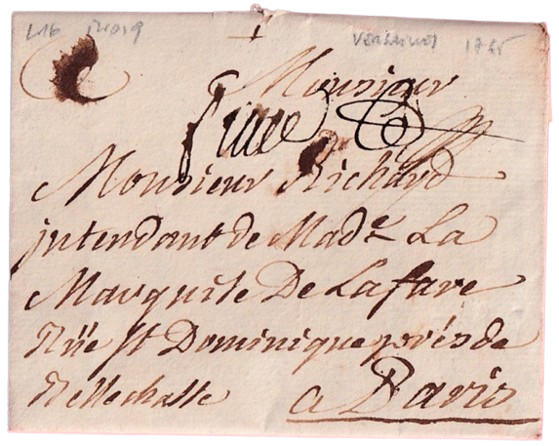 L16 Versailles 1745
Monsieur
Monsieur Richard
intendant de Made La
Marquise De Lafare
Rüe St Dominique prés de
Bellechasse
a Paris